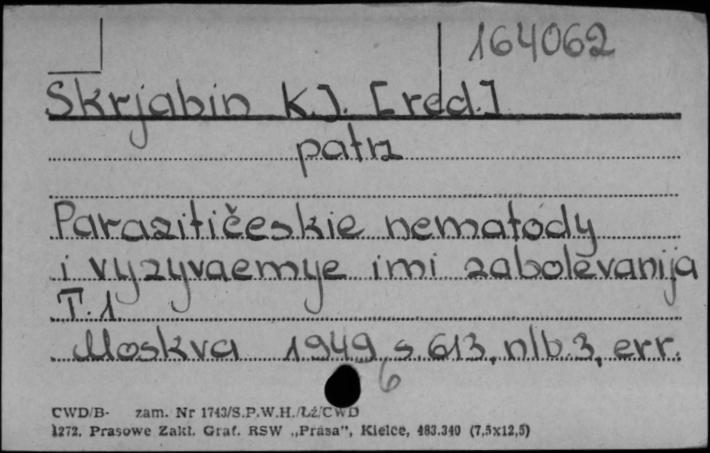 164062
Skrjabin K.J. [red.]
patrz
Parazitičeskie nematody
i vyzyvaemye imi zabolevanija
T.1
Moskva 1949, s 613, nlb. 3, err.
6
CWD/B- zam. Nr 1743/S.P.W.H./Łż/CWD
1272. Prasowe Zakł. Graf. RSW „Prasa”, Kielce, 483.340 (7,5x12,5)